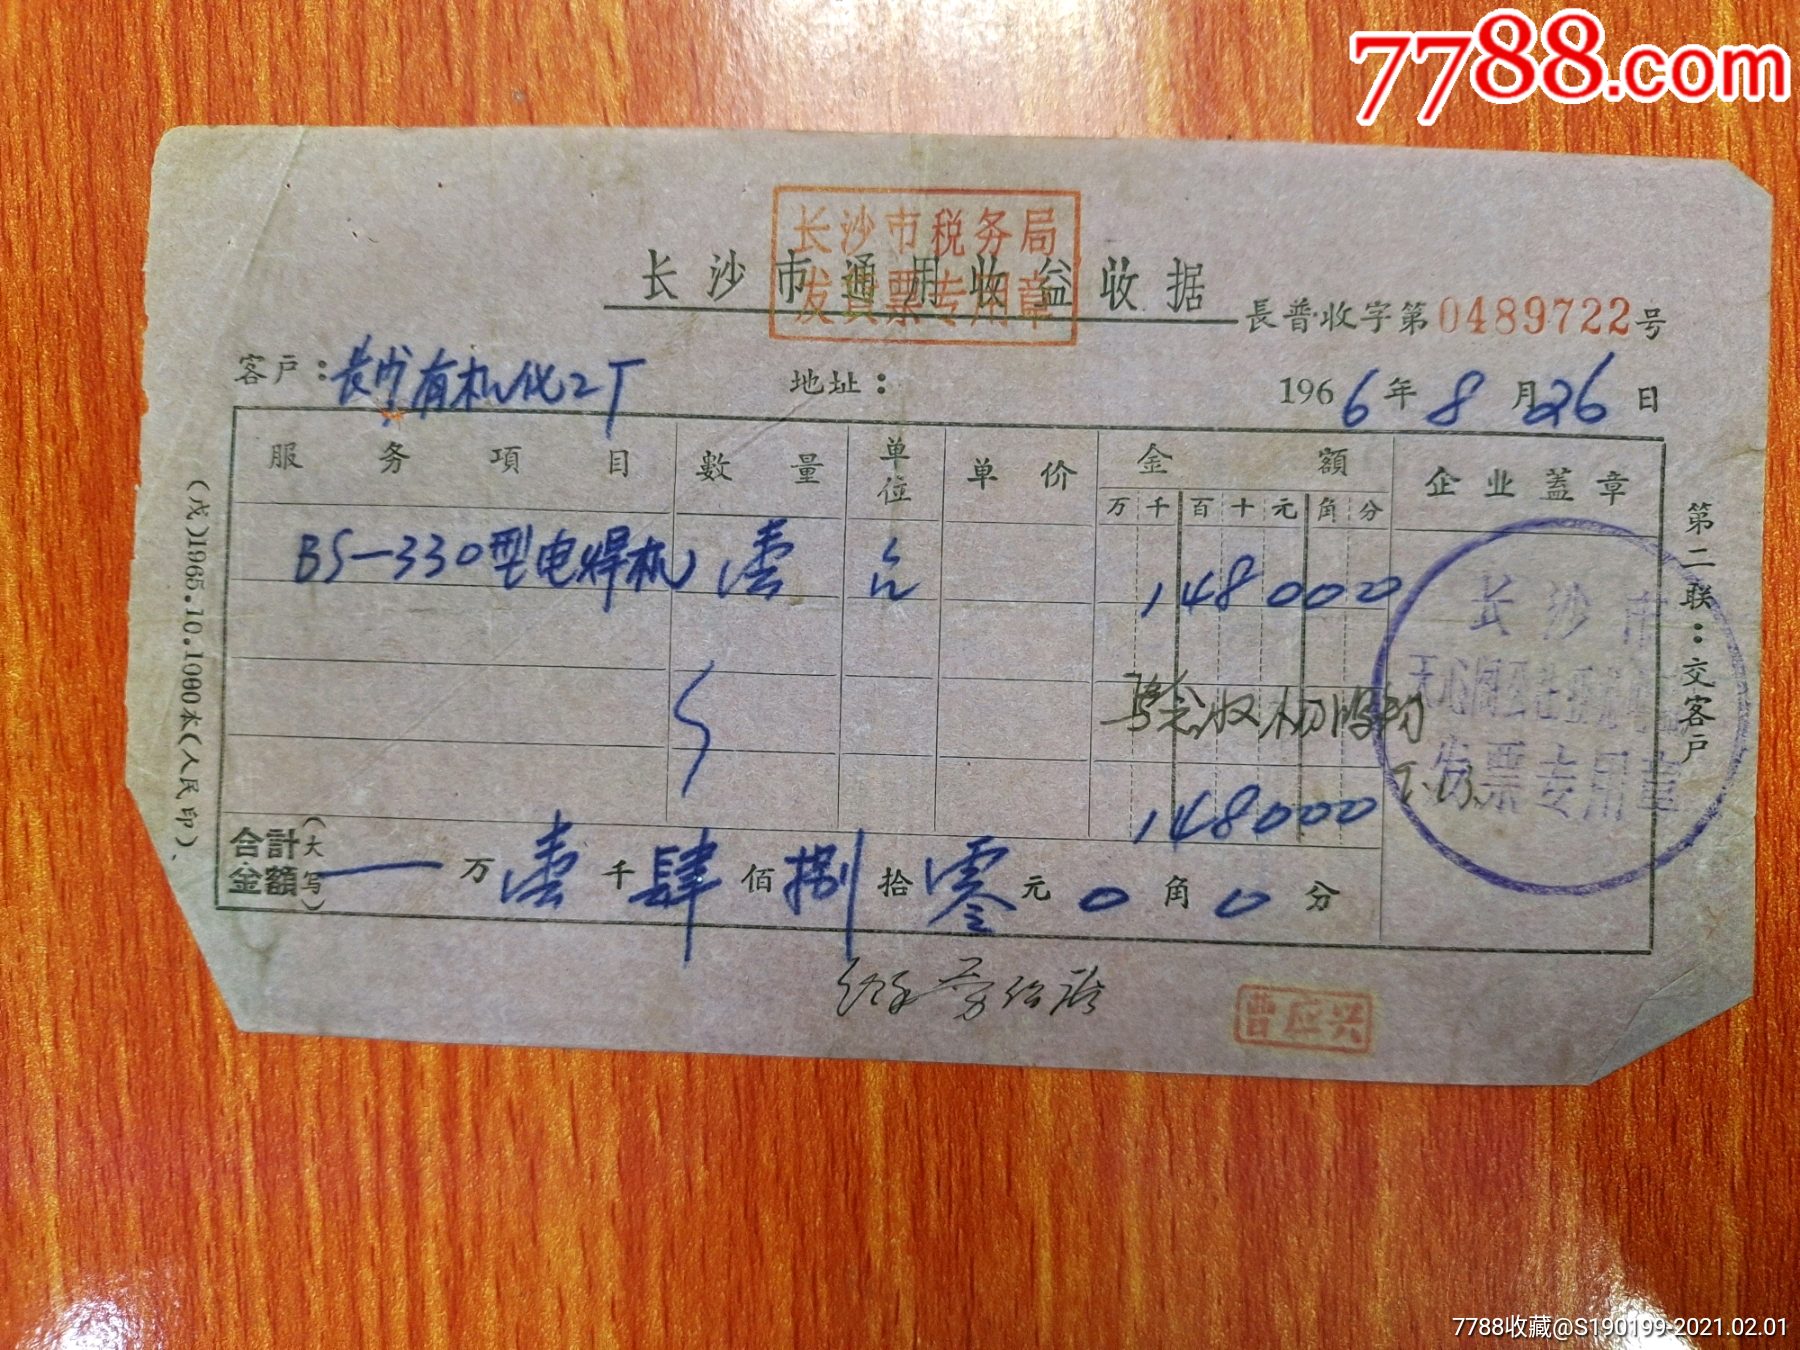 7788.com
长沙市税务局
发货票专用章
长沙市通用收益收据
長普收字第0489722号
客户:长沙有机化工厂 地址: 1966年8月26日
服务項目 數量 单位 单价 金額 企业蓋章
万千百十元角分
BS-330型电焊机 壹 台 148000
验收
148000
合計金額(大写) 一万壹千肆佰捌拾零元0角0分
长沙市
发票专用章
经手
曹应兴
第二联:交客户
(戊)1965.10.1000本(人民印)
7788收藏@S190199-2021.02.01